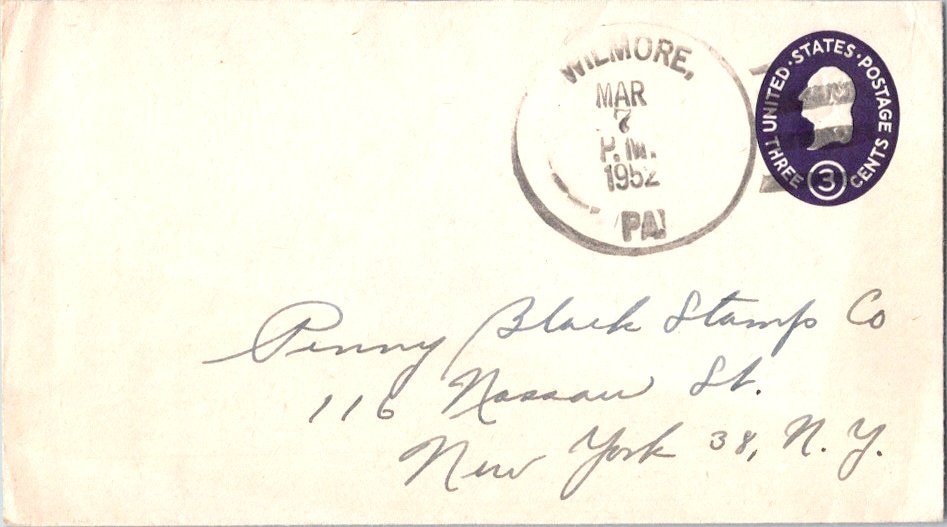 WILMORE,
MAR
7
P.M.
1952
PA
UNITED · STATES · POSTAGE
THREE 3 CENTS
Penny Black Stamp Co
116 Nassau St.
New York 38, N.Y.